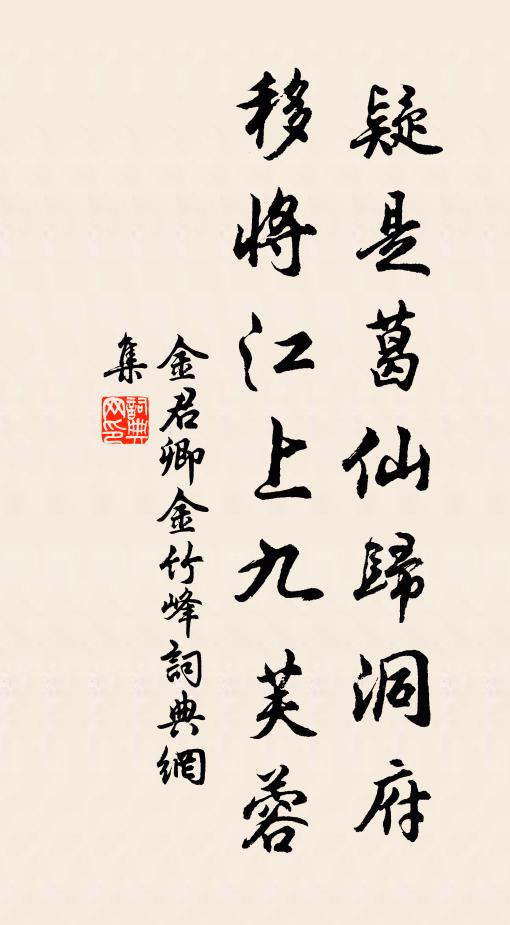 疑是葛仙歸洞府
移將江上九芙蓉
金君卿金竹峰詞典網
集
詞典
網印